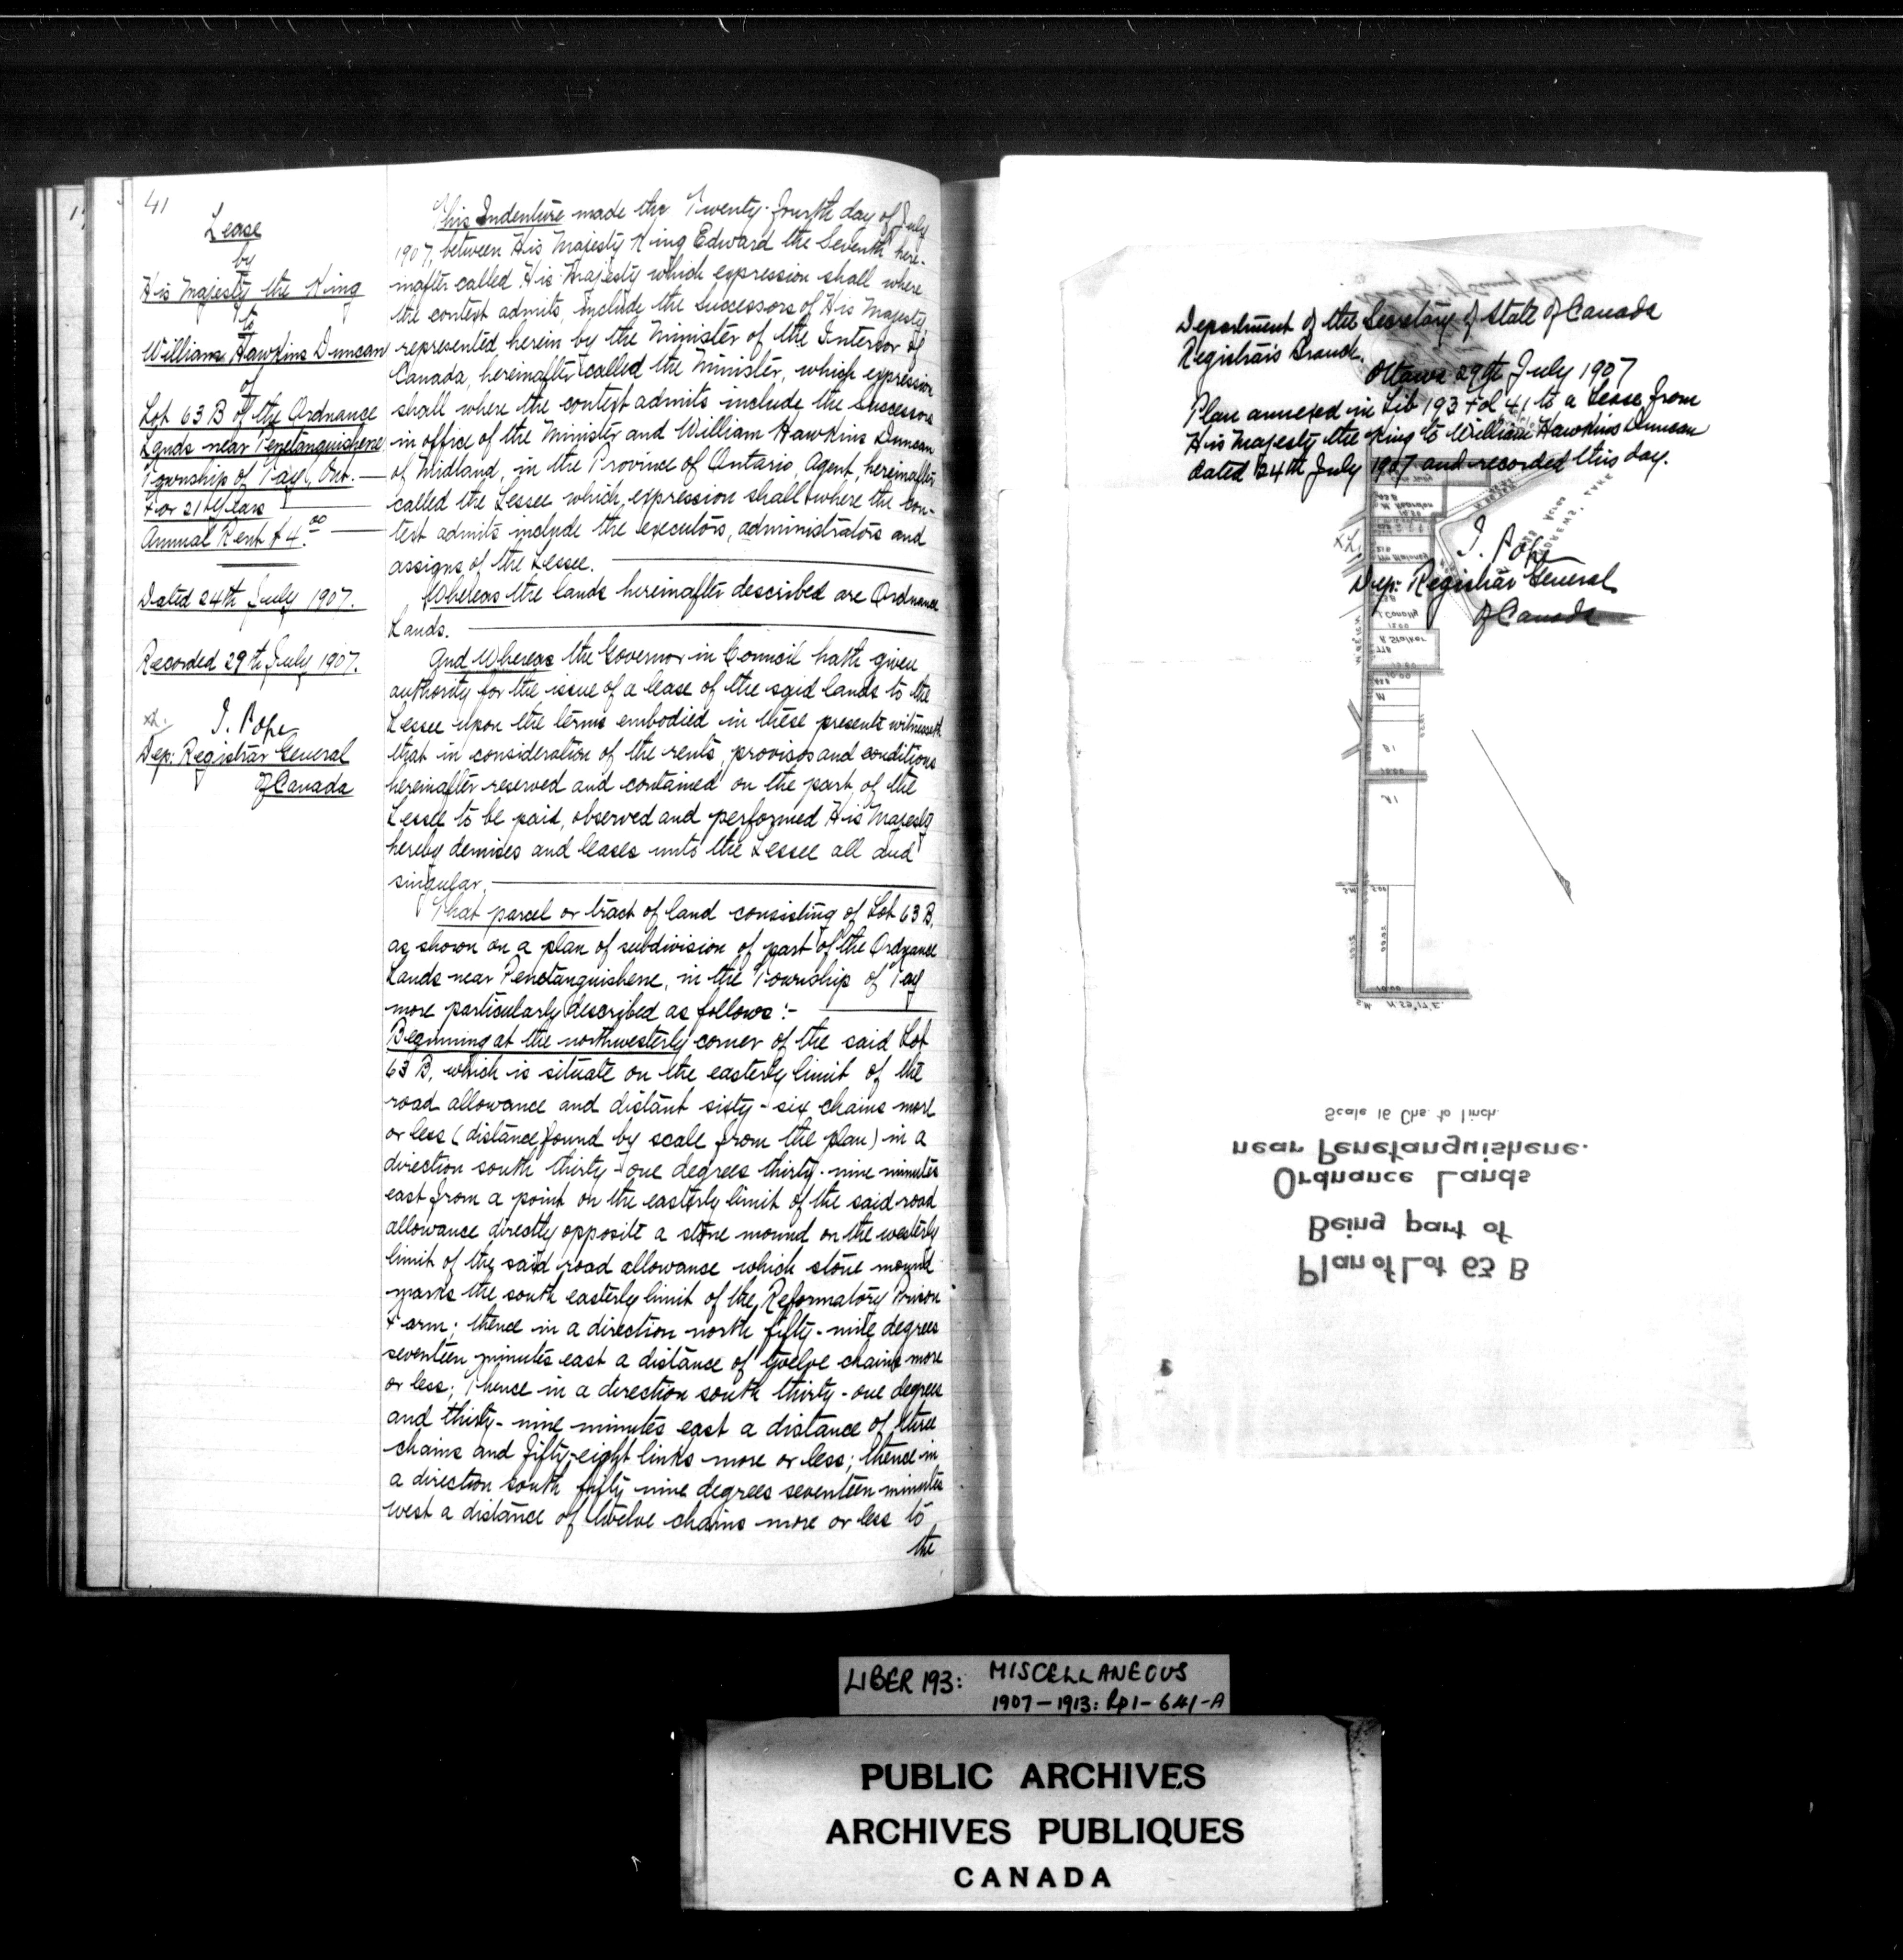 41
Lease
by
His Majesty the King
to
William Hawkins Duncan
of
Lot 63 B of the Ordnance
Lands near Penetanguishene
Township of Tay, Ont.
For 21 Years
Annual Rent $4.00
Dated 24th July 1907.
Recorded 29th July 1907.
J. Pope
Dep: Registrar General
of Canada
This Indenture made the Twenty-fourth day of July
1907, between His Majesty King Edward the Seventh here-
inafter called His Majesty which expression shall where
the context admits, include the successors of His Majesty,
represented herein by the Minister of the Interior of
Canada, hereinafter called the Minister, which expression
shall where the context admits include the Successors
in office of the Minister and William Hawkins Duncan
of Midland, in the Province of Ontario, Agent, hereinafter
called the Lessee which expression shall where the con-
text admits include the executors, administrators and
assigns of the Lessee.
Whereas the lands hereinafter described are Ordnance
Lands.
And Whereas the Governor in Council hath given
authority for the issue of a lease of the said lands to the
Lessee upon the terms embodied in these presents witnesseth
that in consideration of the rents, provisos and conditions
hereinafter reserved and contained on the part of the
Lessee to be paid, observed and performed His Majesty
hereby demises and leases unto the Lessee all and
singular.
That parcel or tract of land consisting of Lot 63 B,
as shown on a plan of subdivision of part of the Ordnance
Lands near Penetanguishene, in the Township of Tay
more particularly described as follows:-
Beginning at the northwesterly corner of the said Lot
63 B, which is situate on the easterly limit of the
road allowance and distant sixty-six chains more
or less (distance found by scale from the plan) in a
direction south thirty-one degrees thirty-nine minutes
east from a point on the easterly limit of the said road
allowance directly opposite a stone mound on the westerly
limit of the said road allowance which stone mound
marks the south easterly limit of the Reformatory Prison
Farm; thence in a direction north fifty-nine degrees
seventeen minutes east a distance of twelve chains more
or less; Thence in a direction south thirty-one degrees
and thirty-nine minutes east a distance of three
chains and fifty-eight links more or less; thence in
a direction south fifty nine degrees seventeen minutes
west a distance of twelve chains more or less to
the
Department of the Secretary of State of Canada
Registrar's Branch.
Ottawa 29th July 1907
Plan annexed in Lib 193 Fol 41 to a Lease from
His Majesty the King to William Hawkins Duncan
dated 24th July 1907 and recorded this day.
J. Pope
Dep: Registrar General
of Canada
J. Conolly
R. Stalker
Scale 16 Chs. to 1 inch.
near Penetanguishene.
Ordnance Lands
Being part of
Plan of Lot 63 B
LIBER 193: MISCELLANEOUS
1907-1913: pp 1-641-A
PUBLIC ARCHIVES
ARCHIVES PUBLIQUES
CANADA